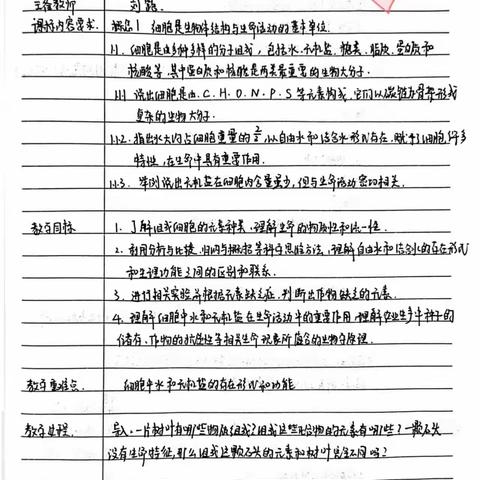 主备教师 刘璐
课标内容要求 概念1 细胞是生物体结构与生命活动的基本单位.
1.1. 细胞是由多种多样的分子组成,包括水、无机盐、糖类、脂质、蛋白质和
核酸等,其中蛋白质和核酸是两类最重要的生物大分子.
1.1.1 说出细胞是由.C.H.O.N.P.S等元素构成,它们以碳链为骨架形成
复杂的生物大分子.
1.1.2. 指出水大约占细胞重量的2/3,以自由水和结合水形式存在,赋予了细胞许多
特性,在生命中具有重要作用.
1.1.3. 举例说出无机盐在细胞内含量虽少,但与生命活动密切相关.
教学目标 1. 了解组成细胞的元素种类,理解生命的物质性和统一性.
2. 利用分析与比较、归纳与概括等科学思维方法,理解自由水和结合水的存在形式
和生理功能之间的区别和联系.
3. 进行相关实验并根据元素缺乏症,判断出作物缺乏的元素.
4. 理解细胞中水和无机盐在生命活动中的重要作用,理解农业生产中种子的
储存、作物的抗逆性等相关生命现象所蕴含的生物学原理.
教学重难点. 细胞中水和无机盐的存在形式和功能
教学过程. 导入:一片树叶有哪些物质组成?组成这些化合物的元素有哪些?一颗石头
没有生命特征,那么组成这颗石头的元素和树叶完全不同吗?